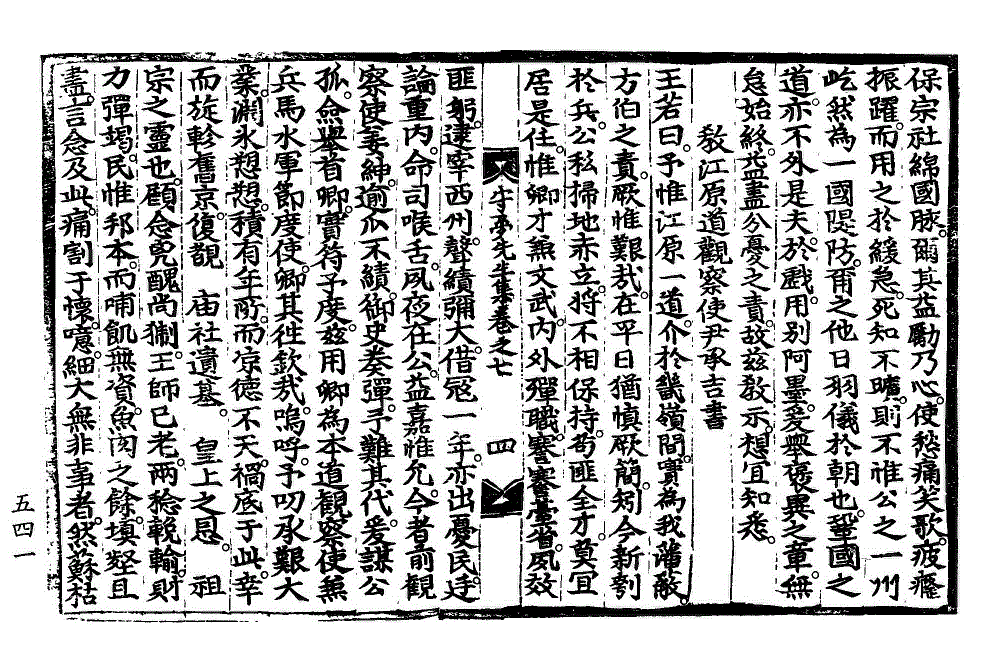 保宗社綿國脉爾其益勵乃心使愁痛笑歌疲癃
振躍而用之於緩急死知不曠則不惟公之一州
屹然為一國隄防爾之他日羽儀於朝也鞏國之
道亦不外是夫於戲用別阿墨爰舉褒異之章無
怠始終益盡分憂之責故玆敎示想宜知悉
敎江原道觀察使尹承吉書
王若曰予惟江原一道介於畿嶺間實為我藩蔽
方伯之責厥惟艱哉在平日猶慎厥簡矧今新刳
於兵公私掃地赤立將不相保持苟匪全才莫宜
居是任惟卿才兼文武內外殫職謇謇臺省夙效
夢先生集卷之七
四
匪躬逮宰西州聲績彌大借冦一年亦出憂民迋
論重內命司喉舌夙夜在公益嘉惟允今者前觀
察使姜紳逾瓜不績御史奏彈予難其代爰謀公
孤僉擧首卿實符予度玆用卿為本道觀察使兼
兵馬水軍節度使卿其徃欽哉嗚呼予叨承艱大
業淵氷恝恝積有年所而凉德不天禍底于此幸
而旋軫舊京復覩 庙社遺基 皇上之恩 祖
宗之靈也顧念兇醜尚猘王師已老兩稔輓輸則
力彈竭民惟邦本而哺飢無資魚肉之餘塡壑且
盡言念及此痛割于懷噫細大無非事者然蘇枯
五四一